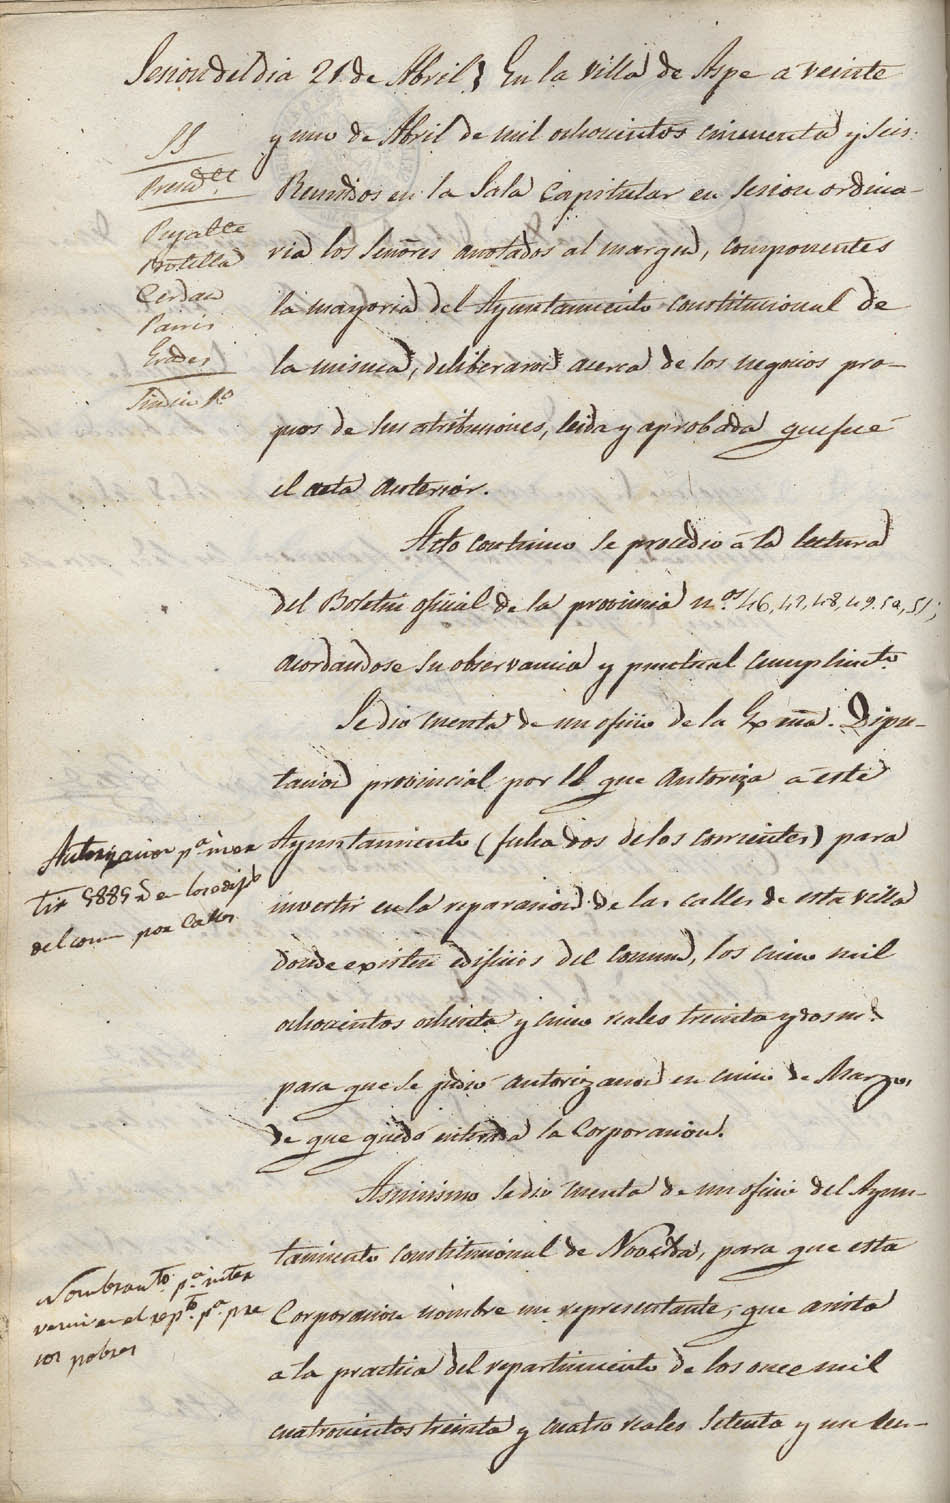 Sesion del dia 21 de Abril } En la villa de Aspe a veinte
y uno de Abril de mil ochocientos cincuenta y seis:
Reunidos en la Sala Capitular en sesion ordina-
ria los Señores anotados al margen, componentes
la mayoria del Ayuntamiento constitucional de
la misma, deliberaron acerca de los negocios pro-
pios de sus atribuciones, leida y aprobada que fué
el acta anterior.
SS
Presid.te
Pujalte
Botella
Cerdan
Pavis
Erades
Sindico 1.o
Acto continuo se procedio a la lectura
del Boletin oficial de la provincia n.os 46, 47, 48, 49, 50, 51;
acordandose su observancia y puntual cumplim.to
Se dio cuenta de un oficio de la Exma. Dipu-
tacion provincial por el que autoriza a este
Ayuntamiento (fecha dos de los corrientes) para
invertir en la reparacion de las calles de esta villa
donde existen edificios del comun, los cinco mil
ochocientos ochenta y cinco reales treinta y dos m.s
para que se pidió autorizacion en cinco de Marzo,
de que quedó enterada la Corporacion.
Autorizacion p.a inver
tir 5885 r en los edif
del comun por Calles
Asimismo se dio cuenta de un oficio del Ayun-
tamiento constitucional de Novelda, para que esta
Corporacion nombre un representante, que asista
a la practica del repartimiento de los once mil
cuatrocientos treinta y cuatro reales setenta y un cen-
Nombramto. p.a inter
venir en el rep.to p.a pre
sos pobres